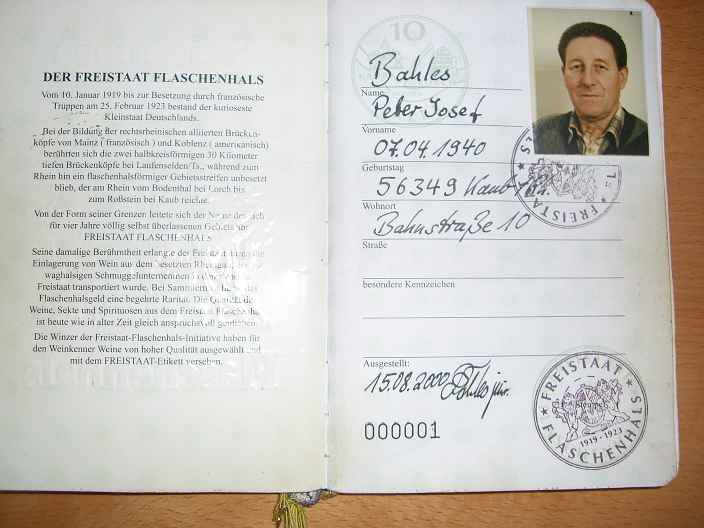 DER FREISTAAT FLASCHENHALS
Vom 10. Januar 1919 bis zur Besetzung durch französische
Truppen am 25. Februar 1923 bestand der kurioseste
Kleinstaat Deutschlands.
Bei der Bildung der rechtsrheinischen alliierten Brücken-
köpfe von Mainz ( französisch ) und Koblenz ( amerikanisch)
berührten sich die zwei halbkreisförmigen 30 Kilometer
tiefen Brückenköpfe bei Laufenselden/Ts., während zum
Rhein hin ein flaschenhalsförmiger Gebietsstreifen unbesetzt
blieb, der am Rhein vom Bodenthal bei Lorch bis
zum Roßstein bei Kaub reichte.
Von der Form seiner Grenzen leitete sich der Name des sich
für vier Jahre völlig selbst überlassenen Gebiets ab:
FREISTAAT FLASCHENHALS
Seine damalige Berühmtheit erlangte der Freistaat durch die
Einlagerung von Wein aus dem besetzten Rheingau, der
waghalsigen Schmuggelunternehmen in den
Freistaat transportiert wurde. Bei Sammlern
Flaschenhalsgeld eine begehrte Rarität. Die Qualität der
Weine, Sekte und Spirituosen aus dem Freistaat Flaschenhals
ist heute wie in alter Zeit gleich anspruchsvoll geblieben.
Die Winzer der Freistaat-Flaschenhals-Initiative haben für
den Weinkenner Weine von hoher Qualität ausgewählt und
mit dem FREISTAAT-Etikett versehen.
10
Bahles
Name
Peter Josef
Vorname
07.04.1940
Geburtstag
56349 Kaub
Wohnort
Bahnstraße 10
Straße
besondere Kennzeichen
Ausgestellt:
15.08.2000 Bahles jun.
000001
FREISTAAT
FREISTAAT
FLASCHENHALS
1919 - 1923